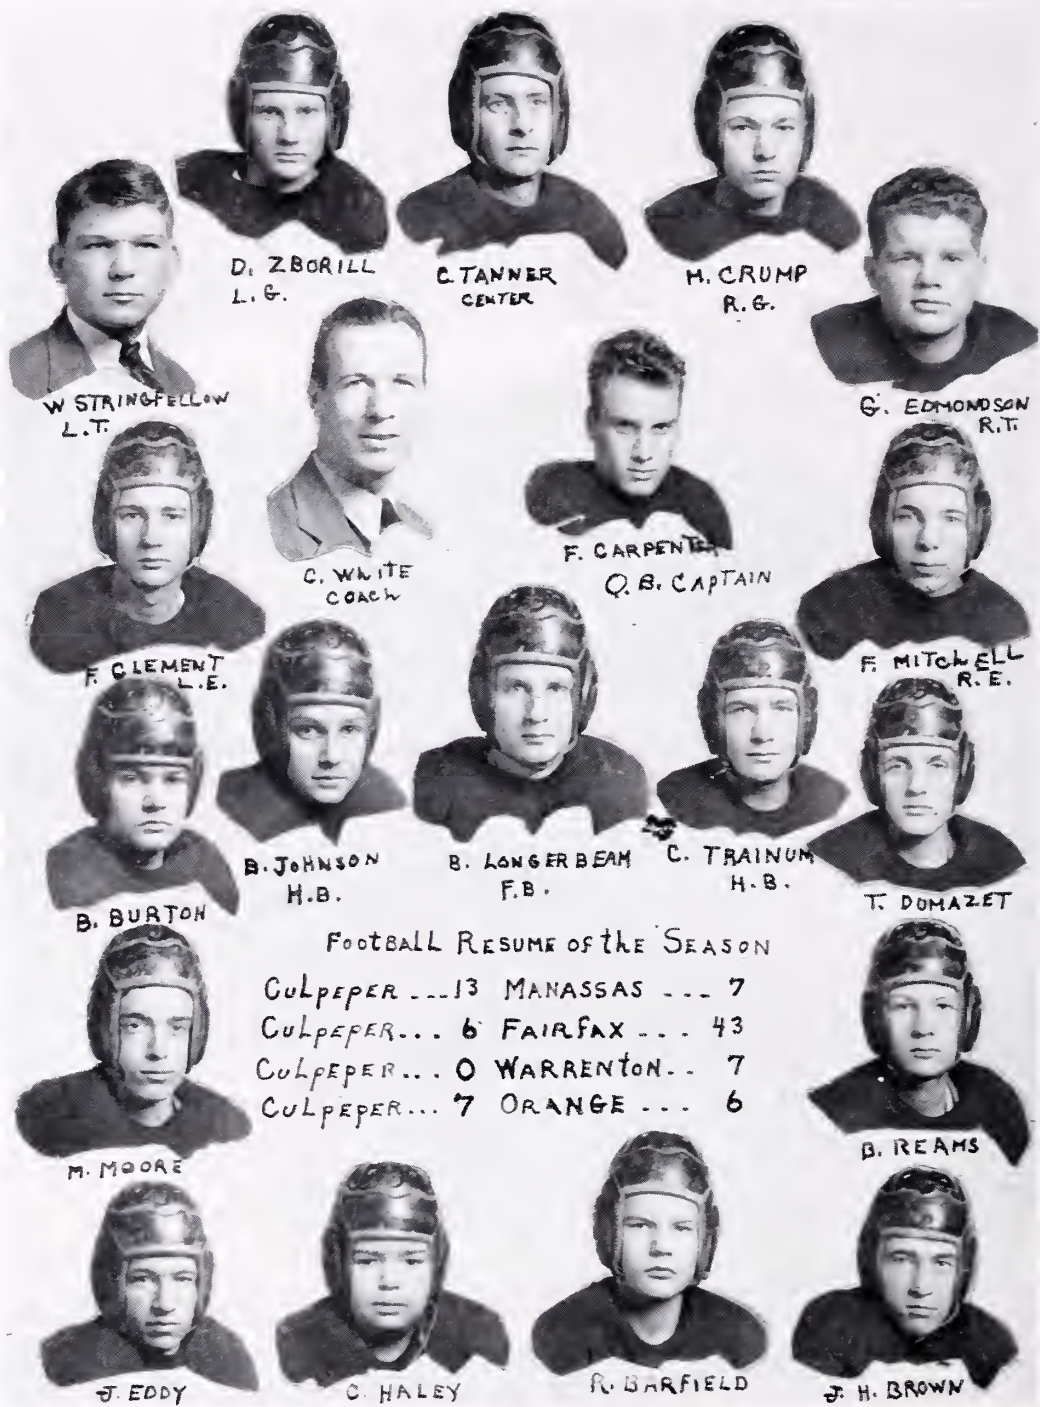 D. ZBORILL
L. G.
C. TANNER
CENTER
H. CRUMP
R. G.
W STRINGFELLOW
L.T.
G. EDMONDSON
R.T.
C. WHITE
COACH
F. CARPENTER
Q. B. CAPTAIN
F. CLEMENT
L.E.
F. MITCHELL
R.E.
B. JOHNSON
H.B.
B. LONGERBEAM
F.B.
C. TRAINUM
H.B.
T. DUMAZET
B. BURTON
FOOTBALL RESUME OF the SEASON
CULPEPER ...13 MANASSAS ... 7
CULPEPER... 6 FAIRFAX ... 43
CULPEPER... 0 WARRENTON.. 7
CULPEPER... 7 ORANGE ... 6
M. MOORE
B. REAMS
J. EDDY
C. HALEY
R. BARFIELD
J. H. BROWN